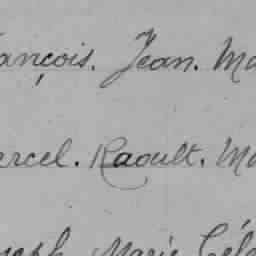 ançois. Jean. Ma
ercel. Raoult. Ma
seph Marie Cél